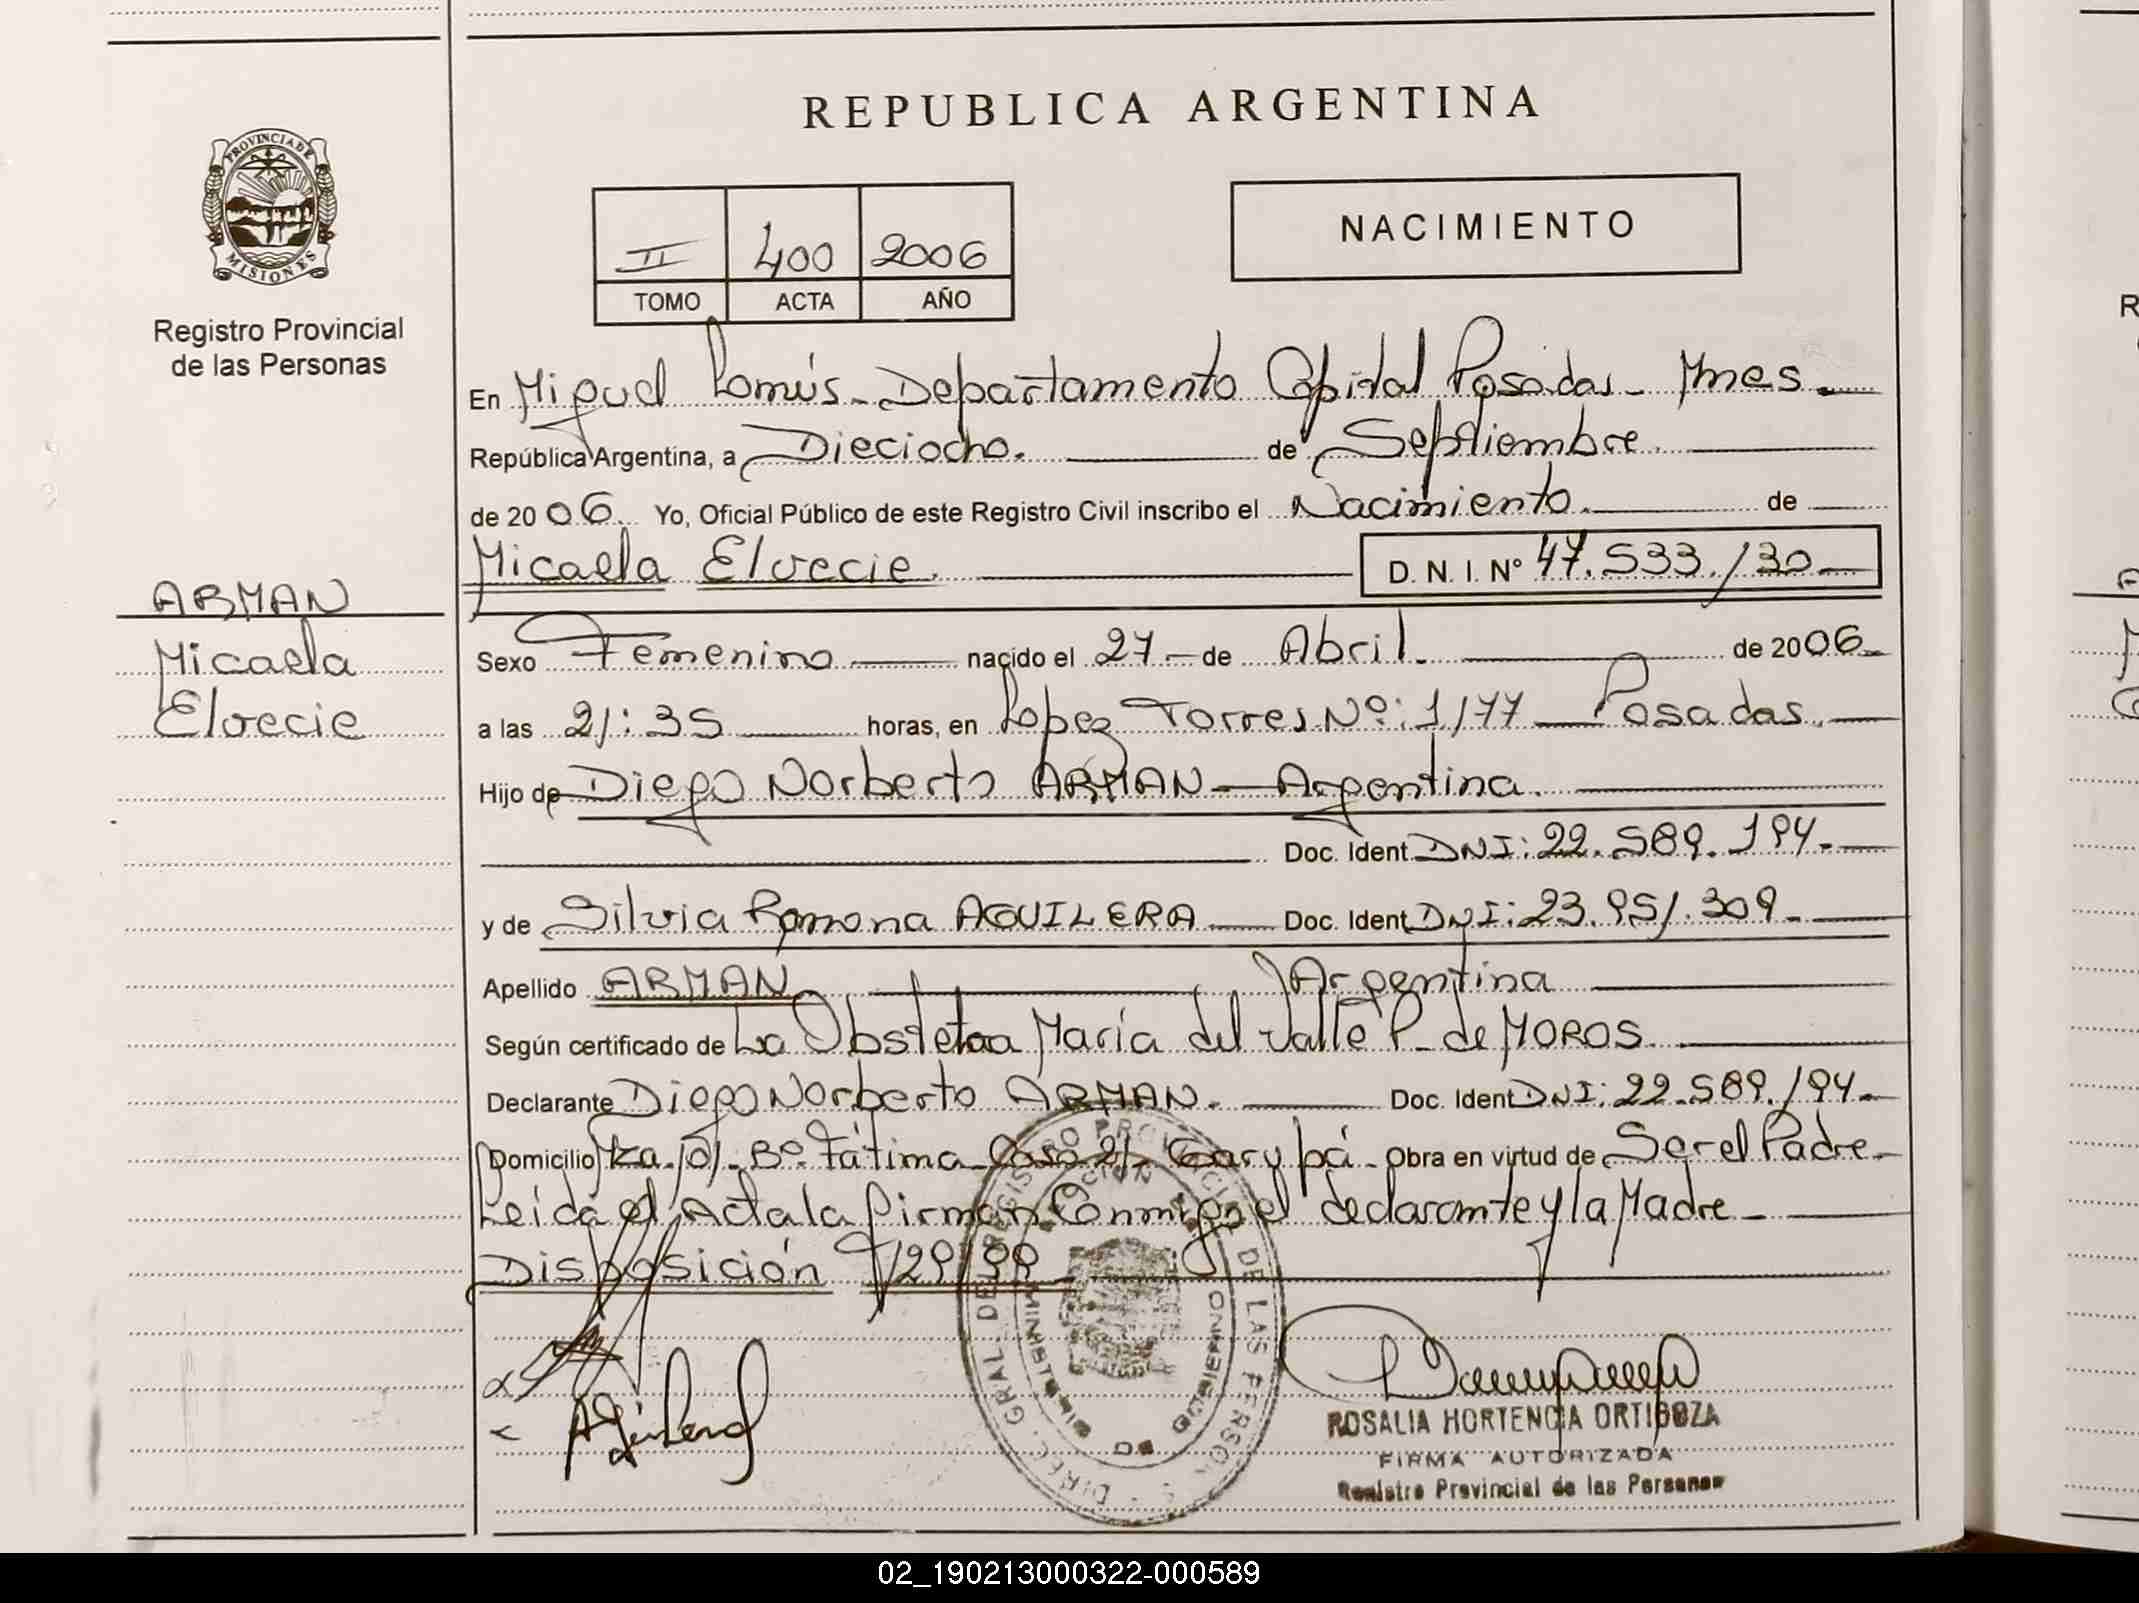 REPUBLICA ARGENTINA
PROVINCIA DE MISIONES
Registro Provincial
de las Personas
NACIMIENTO
II 400 2006
TOMO ACTA AÑO
En Miguel Lanús - Departamento Capital Posadas - Mnes.
República Argentina, a Dieciocho. de Septiembre.
de 2006. Yo, Oficial Público de este Registro Civil inscribo el Nacimiento. de
Micaela Elvecie. D. N. I. Nº 47.533.130
ARMAN
Micaela
Elvecie
Sexo Femenino nacido el 27 - de Abril. de 2006
a las 21:35 horas, en Lopez Torres Nº: 1177 - Posadas.
Hijo de Diego Norberto ARMAN - Argentina.
Doc. Ident DNI: 22.589.194.
y de Silvia Ramona AGUILERA Doc. Ident DNI: 23.951.309.
Apellido ARMAN Argentina
Según certificado de La Obstetra María del Valle P. de MOROS.
Declarante Diego Norberto ARMAN. Doc. Ident DNI: 22.589.194.
Domicilio Bº. Fátima - Casa 21 - Garupá - Obra en virtud de Ser el Padre
Leida el Acta la firman Conmigo el declarante y la Madre
Disposición
DIREC. GRAL. DEL REGISTRO PROVINCIAL DE LAS PERSONAS
MINISTERIO DE GOBIERNO
ROSALIA HORTENCIA ORTIGOZA
FIRMA AUTORIZADA
Registro Provincial de las Personas
02_190213000322-000589